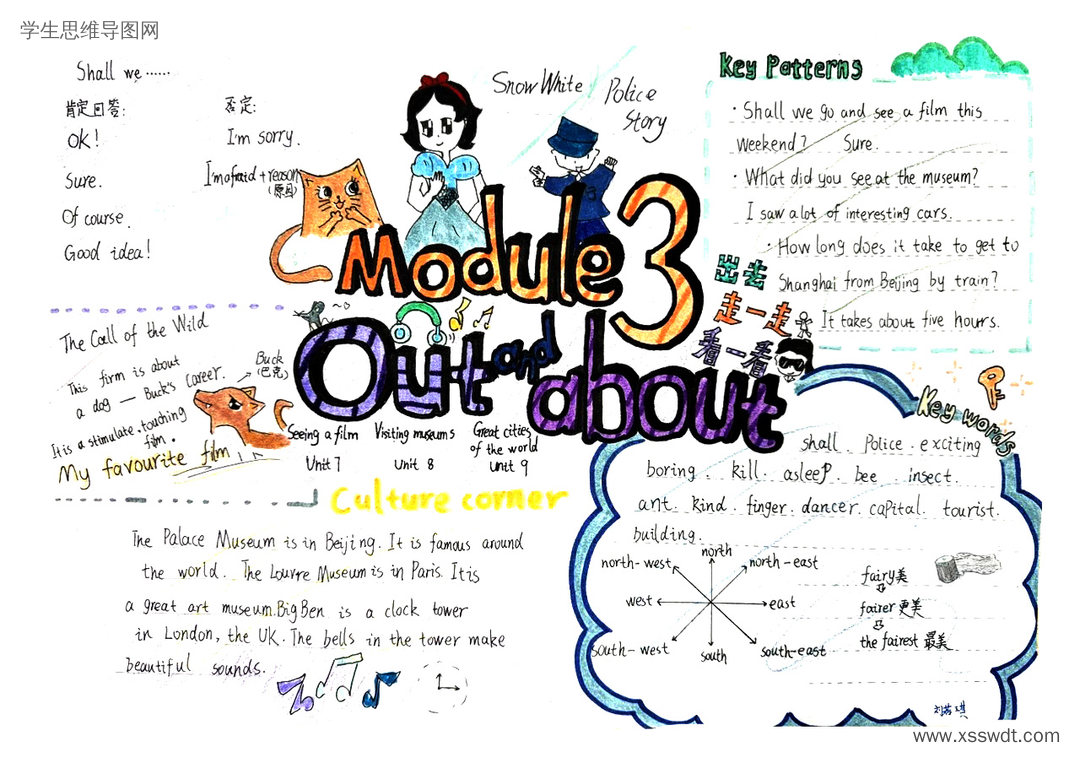 学生思维导图网
Shall we ……
肯定回答:
OK!
Sure.
Of course.
Good idea!
否定:
I'm sorry.
I'm afraid + reason
(原因)
Snow White
Police
Story
Module 3
Out and about
出去
走一走
看一看
Seeing a film
Unit 7
Visiting museums
Unit 8
Great cities
of the world
Unit 9
Key Patterns
· Shall we go and see a film this
weekend? Sure.
· What did you see at the museum?
I saw a lot of interesting cars.
· How long does it take to get to
Shanghai from Beijing by train?
It takes about five hours.
The Call of the Wild
This firm is about
a dog — Buck's career.
Buck
(巴克)
It is a stimulate, touching
film.
My favourite film
Culture corner
The Palace Museum is in Beijing. It is famous around
the world. The Louvre Museum is in Paris. It is
a great art museum. Big Ben is a clock tower
in London, the UK. The bells in the tower make
beautiful sounds.
Key words
shall. Police. exciting
boring. kill. asleep. bee insect.
ant. kind. finger. dancer. capital. tourist.
building.
north
north-west
north-east
west
east
south-west
south
south-east
fairy美
fairer更美
the fairest 最美
www.xsswdt.com